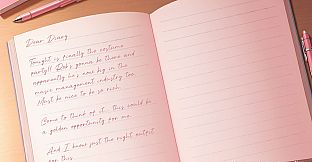 Dear Diary
Tonight is finally the costume
party!! Rob's gonna be there and
apparently he's now big in the
music management industry too.
Must be nice to be so rich.
Come to think of it... this could be
a golden opportunity for me.
And I know just the right outfit
for this.